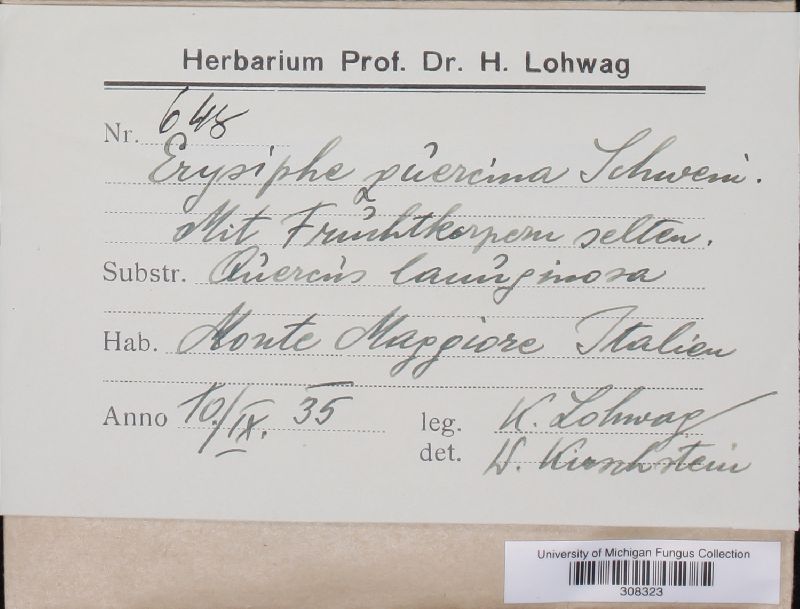 Herbarium Prof. Dr. H. Lohwag
Nr. 648
Erysiphe quercina Schwein.
Mit Fruchtkorpern selten.
Substr. Quercus lanuginosa
Hab. Monte Maggiore Italien
Anno 10./IX. 35 leg. K. Lohwag
det. W. Kirschstein
University of Michigan Fungus Collection
308323